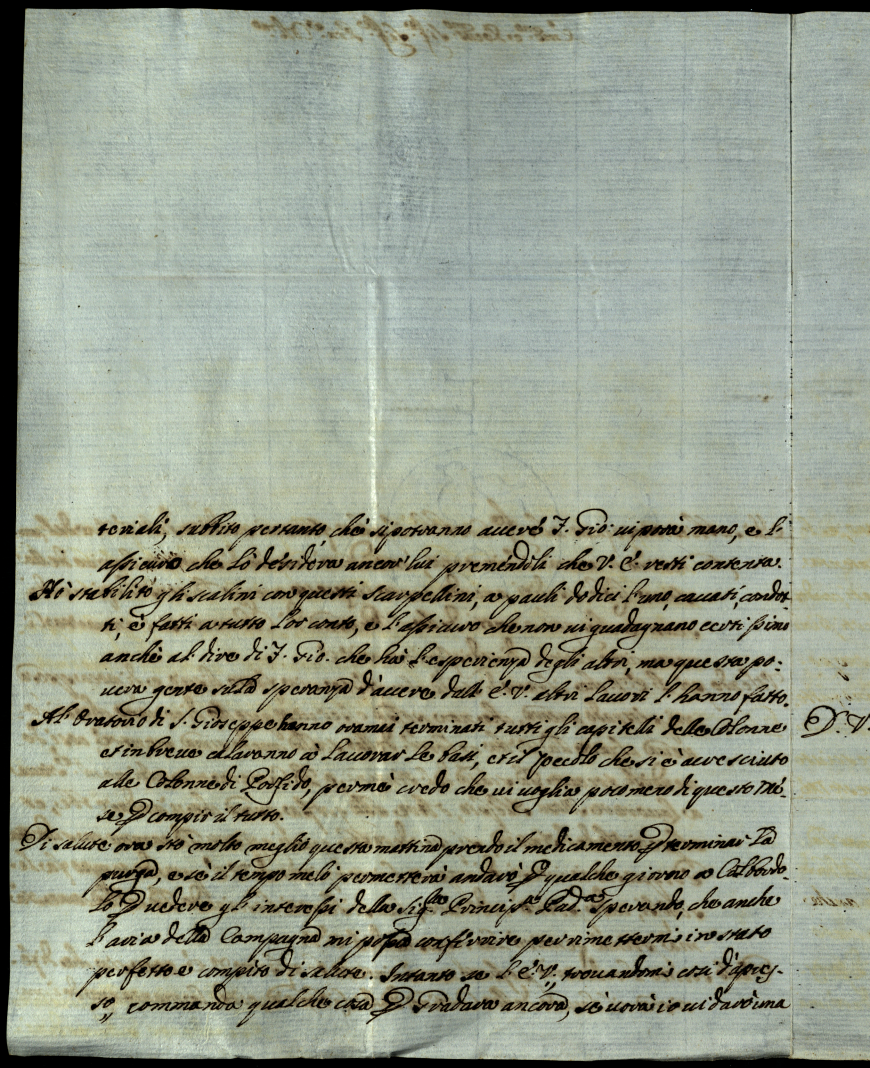 teriali, subbito pertanto che si potranno avere F. Gio: vi porrà mano, e l'
assicuro che lo desidera ancor lui premendoli che V. E. resti contenta.
Hò stabilito gli scalini con questi scarpellini, a pauli dodici l'uno, cavati, condot-
ti, e fatti a tutto lor conto, e l'assicuro che non vi guadagnano certissimo
anche al dire di F. Gio. che hà l'esperienza degli altri, ma questa po:
vera gente sulla speranza d'avere dall' E. V. altri lavori l'hanno fatto.
Al Oratorio di S. Gioseppe hanno oramai terminati tutti gli capitelli delle Colonne
et in breve calaranno à lavorar le basi, et il pecolo che si è accresciuto
alle Colonne di Porfido, per me credo che vi voglia poco meno di questo me-
se per compir il tutto.
Di salute ora stò molto meglio questa mattina prendo il medicamento per terminar la
purga, e se il tempo melo permetterà andarò per qualche giorno a
lo per vedere gl'interessi della Sig.ra Princip.a Pad.a sperando, che anche
l'aria della Campagna mi possa conferire per rimettermi in stato
perfetto e compito di salute. Intanto se l'E. V., trovandomi così d'apres-
so, commanda qualche cosa per ancora, se vorà io vi darò una
D. V.